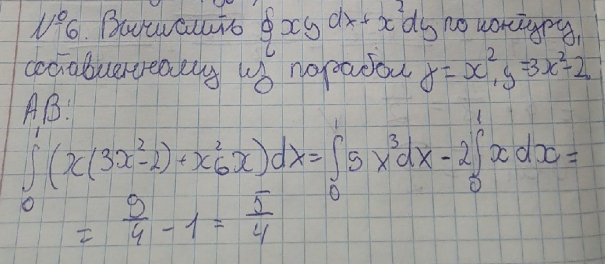 №6. Вычислить ∮ xy dx + x² dy по контуру,
L
составленному из парабол y = x², y = 3x²-2.
AB:
∫₀¹ (x(3x²-2) + x² 6x) dx = ∫₀¹ 9x³ dx - 2∫₀¹ x dx =
= 9/4 - 1 = 5/4